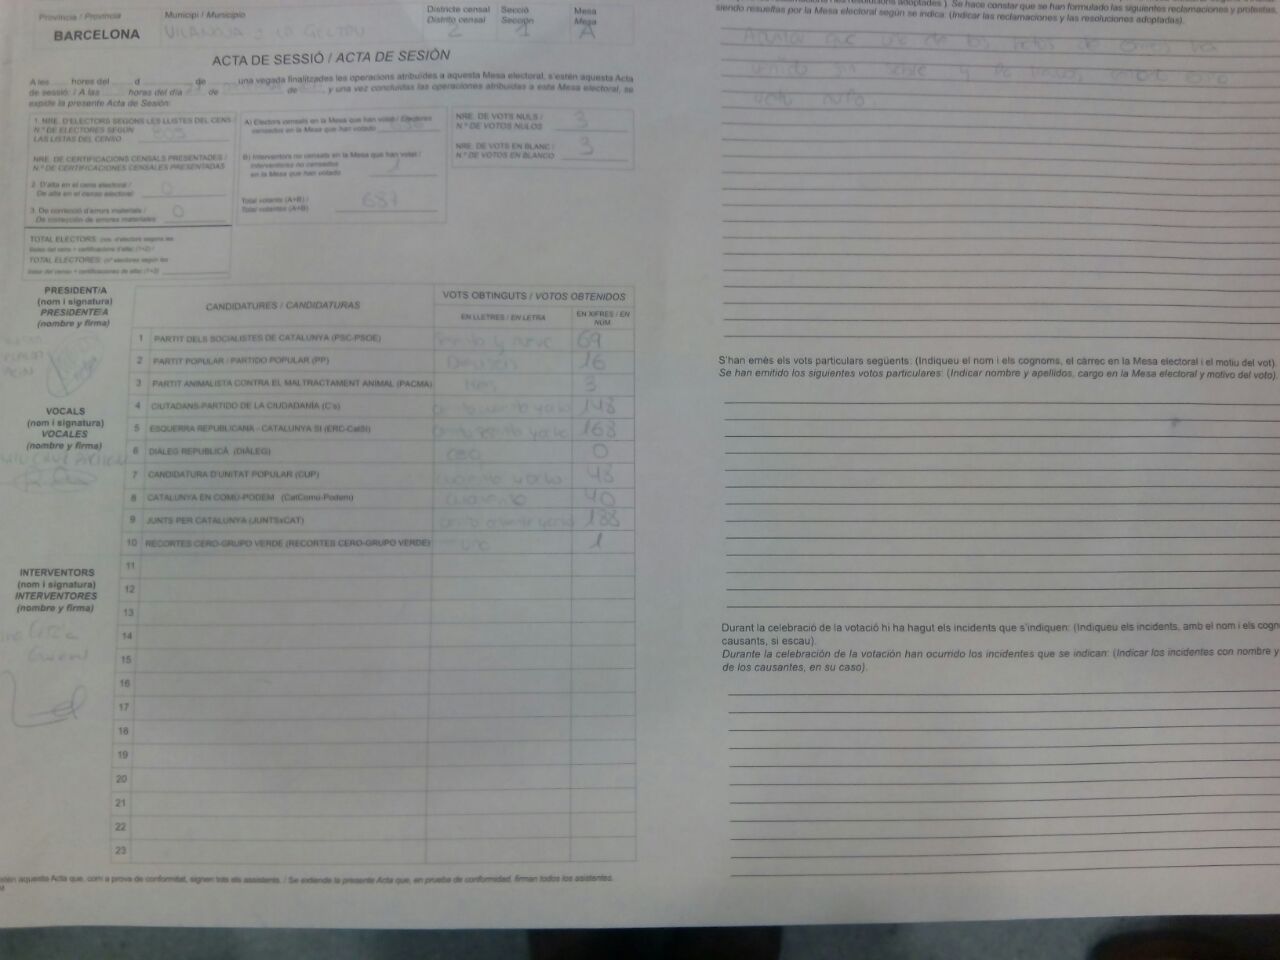 Província / Provincia
Municipi / Municipio
Districte censal
Distrito censal
Secció
Sección
Mesa
Mesa
BARCELONA
VILANOVA I LA GELTRU
2
1
A
ACTA DE SESSIÓ / ACTA DE SESIÓN
A les hores del d de una vegada finalitzades les operacions atribuïdes a aquesta Mesa electoral, s'estén aquesta Acta
de sessió: / A las horas del día de de , y una vez concluidas las operaciones atribuidas a este Mesa electoral, se
expide la presente Acta de Sesión:
1. NRE. D'ELECTORS SEGONS LES LLISTES DEL CENS
N.º DE ELECTORES SEGÚN
LAS LISTAS DEL CENSO
NRE. DE CERTIFICACIONS CENSALS PRESENTADES /
N.º DE CERTIFICACIONES CENSALES PRESENTADAS
2. D'alta en el cens electoral /
De alta en el censo electoral 0
3. De correcció d'errors materials /
De corrección de errores materiales 0
TOTAL ELECTORS:
TOTAL ELECTORES:
A) Electors censats en la Mesa que han votat / Electores
censados en la Mesa que han votado
B) Interventors no censats en la Mesa que han votat /
Interventores no censados
en la Mesa que han votado 1
Total votants (A+B) /
Total votantes (A+B) 687
NRE. DE VOTS NULS /
N.º DE VOTOS NULOS 3
NRE. DE VOTS EN BLANC /
N.º DE VOTOS EN BLANCO 3
PRESIDENT/A
(nom i signatura)
PRESIDENTE/A
(nombre y firma)
CANDIDATURES / CANDIDATURAS
VOTS OBTINGUTS / VOTOS OBTENIDOS
EN LLETRES / EN LETRA
EN XIFRES / EN
NÚM.
1 PARTIT DELS SOCIALISTES DE CATALUNYA (PSC-PSOE) y nueve 69
2 PARTIT POPULAR / PARTIDO POPULAR (PP) 16
3 PARTIT ANIMALISTA CONTRA EL MALTRACTAMENT ANIMAL (PACMA) tres 3
4 CIUTADANS-PARTIDO DE LA CIUDADANÍA (C's) 148
5 ESQUERRA REPUBLICANA - CATALUNYA SÍ (ERC-CatSí) 168
6 DIÀLEG REPUBLICÀ (DIÀLEG) cero 0
7 CANDIDATURA D'UNITAT POPULAR (CUP) cuarenta y ocho 48
8 CATALUNYA EN COMÚ-PODEM (CatComú-Podem) cuarenta 40
9 JUNTS PER CATALUNYA (JUNTSxCAT) 188
10 RECORTES CERO-GRUPO VERDE (RECORTES CERO-GRUPO VERDE) uno 1
11
12
13
14
15
16
17
18
19
20
21
22
23
VOCALS
(nom i signatura)
VOCALES
(nombre y firma)
INTERVENTORS
(nom i signatura)
INTERVENTORES
(nombre y firma)
aquesta Acta que, com a prova de conformitat, signen tots els assistents. / Se extiende la presente Acta que, en prueba de conformidad, firman todos los asistentes.
resoluciones adoptadas ). Se hace constar que se han formulado las siguientes reclamaciones y protestas,
siendo resueltas por la Mesa electoral según se indica: (Indicar las reclamaciones y las resoluciones adoptadas).
que uno de los votos de
venido sin sobre y
voto nulo.
S'han emès els vots particulars següents: (Indiqueu el nom i els cognoms, el càrrec en la Mesa electoral i el motiu del vot).
Se han emitido los siguientes votos particulares: (Indicar nombre y apellidos, cargo en la Mesa electoral y motivo del voto).
Durant la celebració de la votació hi ha hagut els incidents que s'indiquen: (Indiqueu els incidents, amb el nom i els cogno
causants, si escau).
Durante la celebración de la votación han ocurrido los incidentes que se indican: (Indicar los incidentes con nombre y
de los causantes, en su caso).